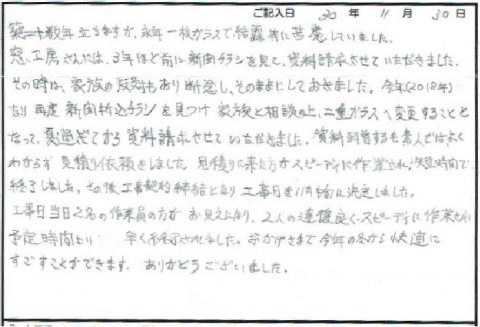 ご記入日 30年 11月 30日
築二十数年立ちますが、永年一枚ガラスで結露等に苦慮していました。
窓工房さんには、3年ほど前に新聞チラシを見て、資料請求させていただきました。
その時は、家族の反対もあり断念し、そのままにしておきました。今年(2018年)
になり再度新聞折込チラシを見つけ家族と相談の上、二重ガラスへ変更することと
なって、夏過ぎてから資料請求させていただきました。資料到着するも素人ではよく
わからず見積り依頼をしました。見積りに来た方がスピーディに作業され、短時間で
終了しました。その後工事契約締結となり工事日を11月に決定しました。
工事日当日2名の作業員の方がお見えになり、2人の連携良くスピーディに作業され
予定時間より 早く終了されました。おかげさまで今年の冬から快適に
すごすことができます。ありがとうございました。